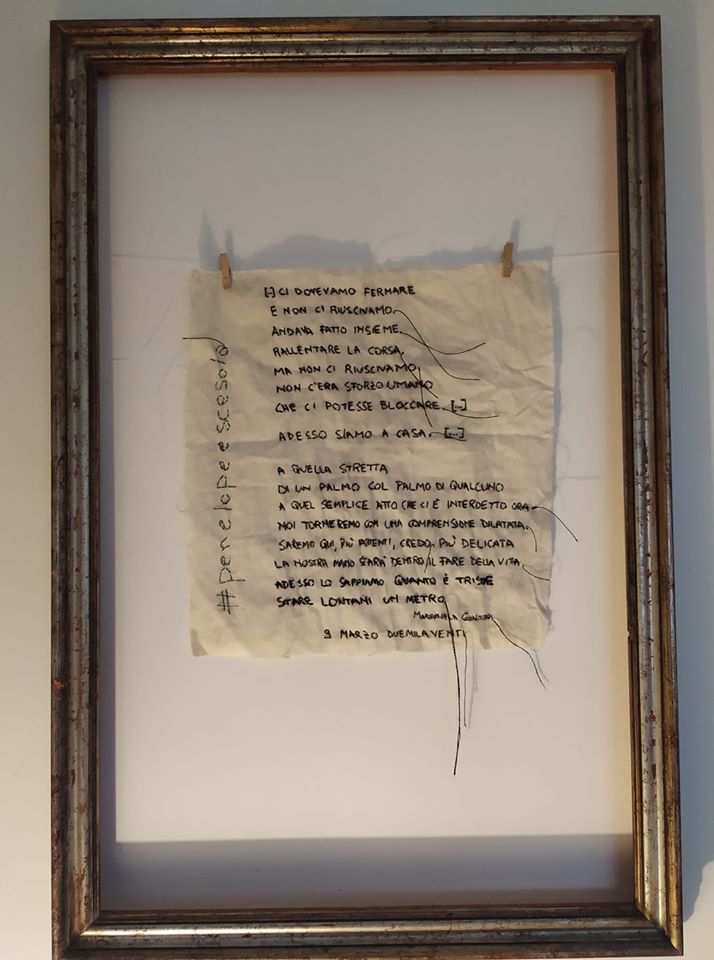 [..] CI DOVEVAMO FERMARE
E NON CI RIUSCIVAMO.
ANDAVA FATTO INSIEME.
RALLENTARE LA CORSA.
MA NON CI RIUSCIVAMO.
NON C'ERA SFORZO UMANO
CHE CI POTESSE BLOCCARE. [...]
ADESSO SIAMO A CASA. [...]
A QUELLA STRETTA
DI UN PALMO COL PALMO DI QUALCUNO
A QUEL SEMPLICE ATTO CHE CI È INTERDETTO ORA
NOI TORNEREMO CON UNA COMPRENSIONE DILATATA.
SAREMO QUI, PIÙ ATTENTI, CREDO. PIÙ DELICATA
LA NOSTRA MANO STARÀ DENTRO IL FARE DELLA VITA.
ADESSO LO SAPPIAMO QUANTO È TRISTE
STARE LONTANI UN METRO.
MARIANGELA GUALTIERI
9 MARZO DUEMILAVENTI
#penelopeescesola